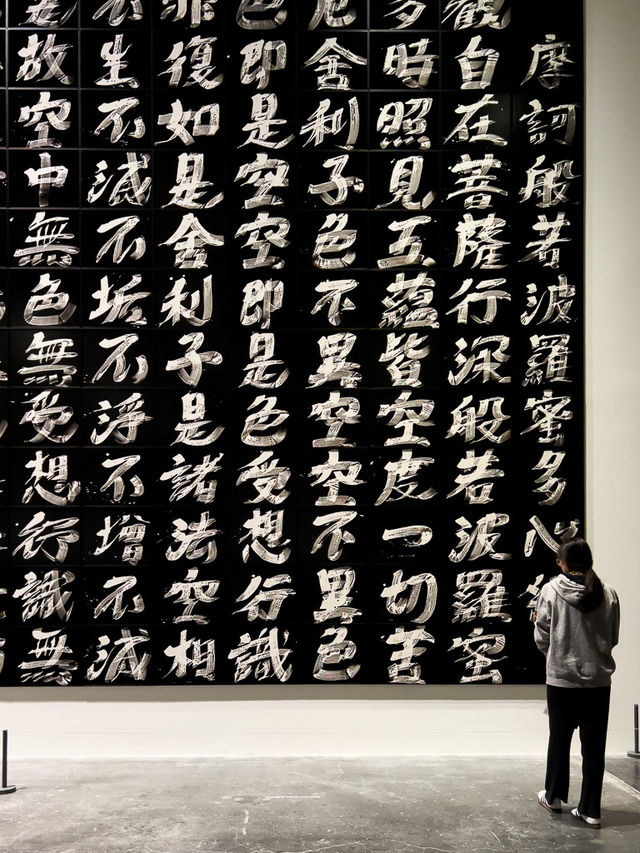 摩訶般若波羅蜜多心
觀自在菩薩行深般若波羅蜜
多時照見五蘊皆空度一切苦
厄舍利子色不異空空不異色
色即是空空即是色受想行識
亦復如是舍利子是諸法空相
不生不滅不垢不淨不增不減
是故空中無色無受想行識無